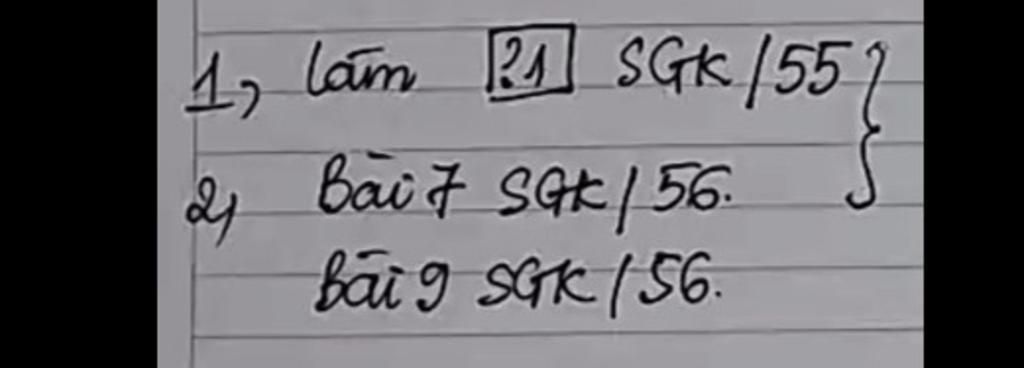 1, làm ?1 SGK/55
2, Bài 7 SGK/56.
Bài 9 SGK/56.